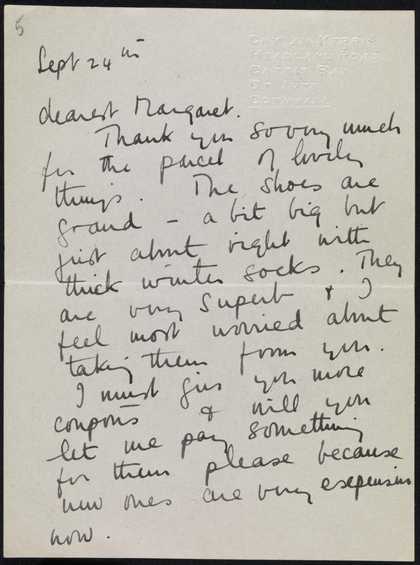 5
Sept 24th
dearest Margaret.
Thank you so very much
for the parcel of lovely
things. The shoes are
grand – a bit big but
just about right with
thick winter socks. They
are very superb & I
feel most worried about
taking them from you.
I must give you more
coupons & will you
let me pay something
for them please because
new ones are very expensive
now.